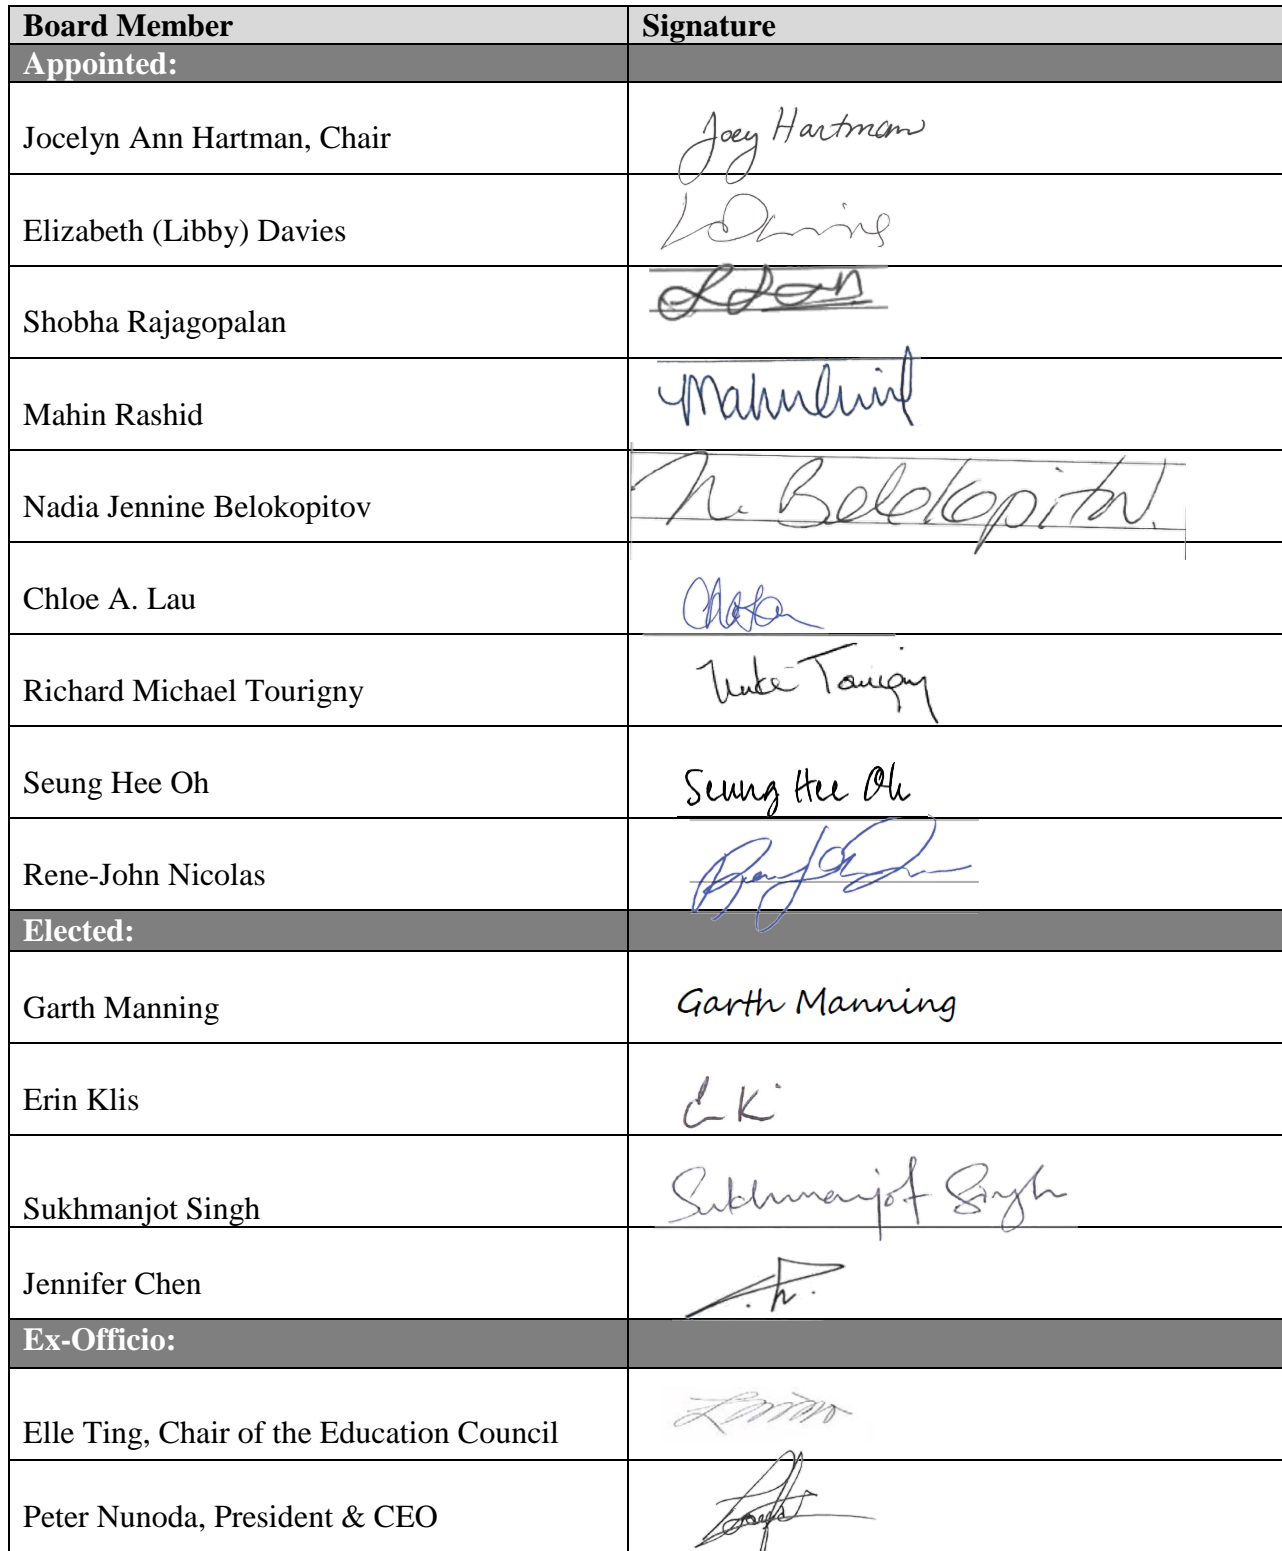 Board Member Signature
Appointed:
Jocelyn Ann Hartman, Chair Joey Hartman
Elizabeth (Libby) Davies
Shobha Rajagopalan
Mahin Rashid
Nadia Jennine Belokopitov N. Belokopitov.
Chloe A. Lau
Richard Michael Tourigny Mike Tourigny
Seung Hee Oh Seung Hee Oh
Rene-John Nicolas
Elected:
Garth Manning Garth Manning
Erin Klis
Sukhmanjot Singh Sukhmanjot Singh
Jennifer Chen
Ex-Officio:
Elle Ting, Chair of the Education Council
Peter Nunoda, President & CEO